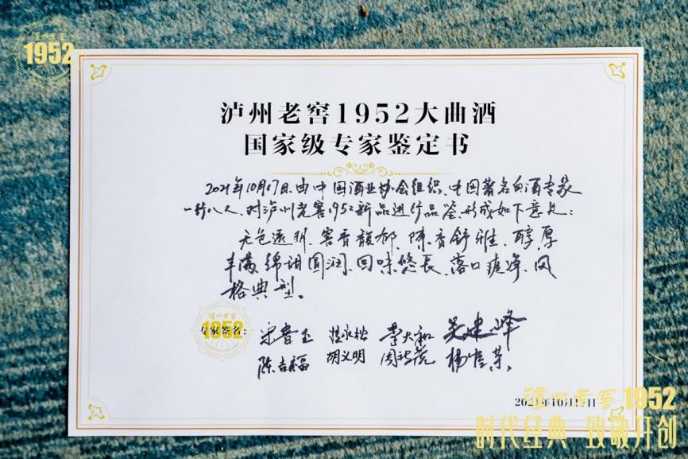 1952
泸州老窖1952大曲酒
国家级专家鉴定书
2021年10月17日,由中国酒业协会组织、中国著名白酒专家
一行八人,对泸州老窖1952新品进行品鉴,形成如下意见:
无色透明、窖香馥郁、陈香舒雅、醇厚
丰满、绵甜圆润、回味悠长、落口爽净、风
格典型。
1952
专家签名:
李大和 吴建峰
陈吉福 胡义明
2021年10月17日
泸州老窖1952
时代经典 致敬开创